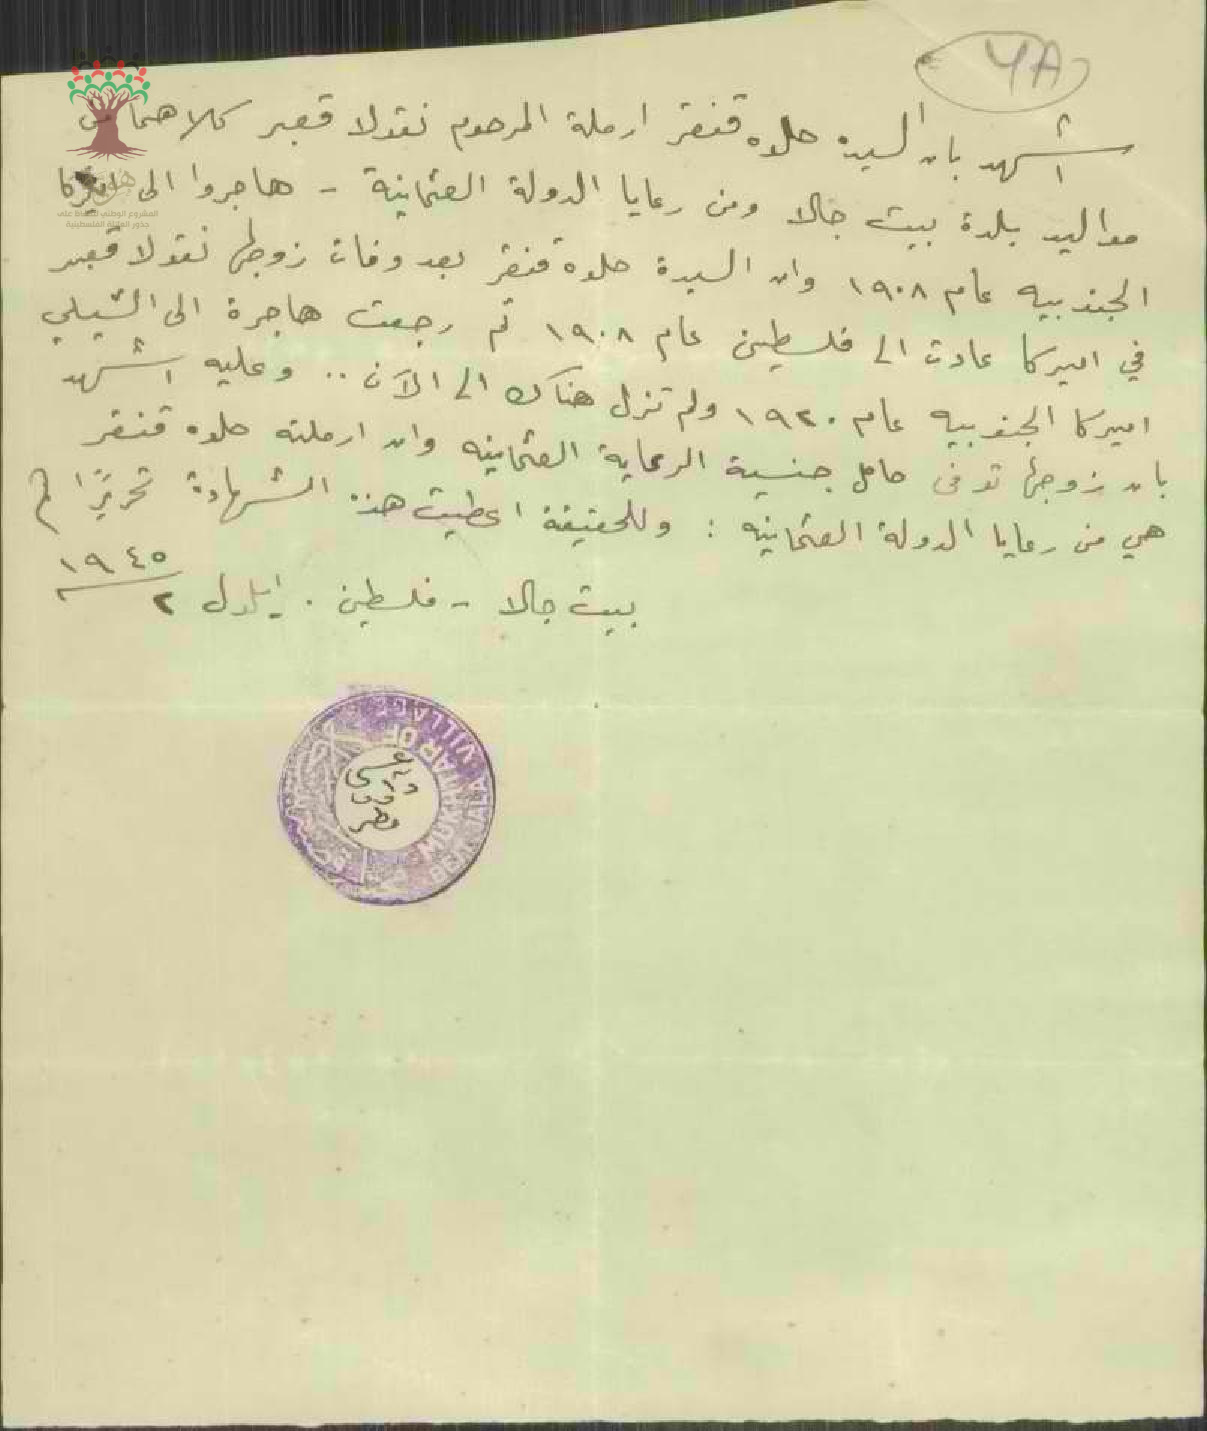 4A
اشهد بان السيده حلوه قنقر ارملة المرحوم نقولا قعبر كلاهما من
مواليد بلدة بيت جالا ومن رعايا الدولة العثمانية - هاجروا الى اميركا
الجنوبيه عام ١٩٠٨ وان السيدة حلوه قنقر بعد وفات زوجها نقولا قعبر
في اميركا عادت الى فلسطين عام ١٩٠٨ ثم رجعت هاجرة الى التشيلي
اميركا الجنوبيه عام ١٩٢٠ ولم تزل هناك الى الآن .. وعليه اشهد
بان زوجها توفى حامل جنسية الرعاية العثمانيه وان ارملته حلوه قنقر
هي من رعايا الدولة العثمانيه : وللحقيقة اعطيت هذه الشهادة تحريرًا في
بيت جالا - فلسطين . ايلول ٢ ١٩٤٥
المشروع الوطني للحفاظ على
جذور العائلة الفلسطينية
MUKHTAR OF
BEIT JALA VILLAGE